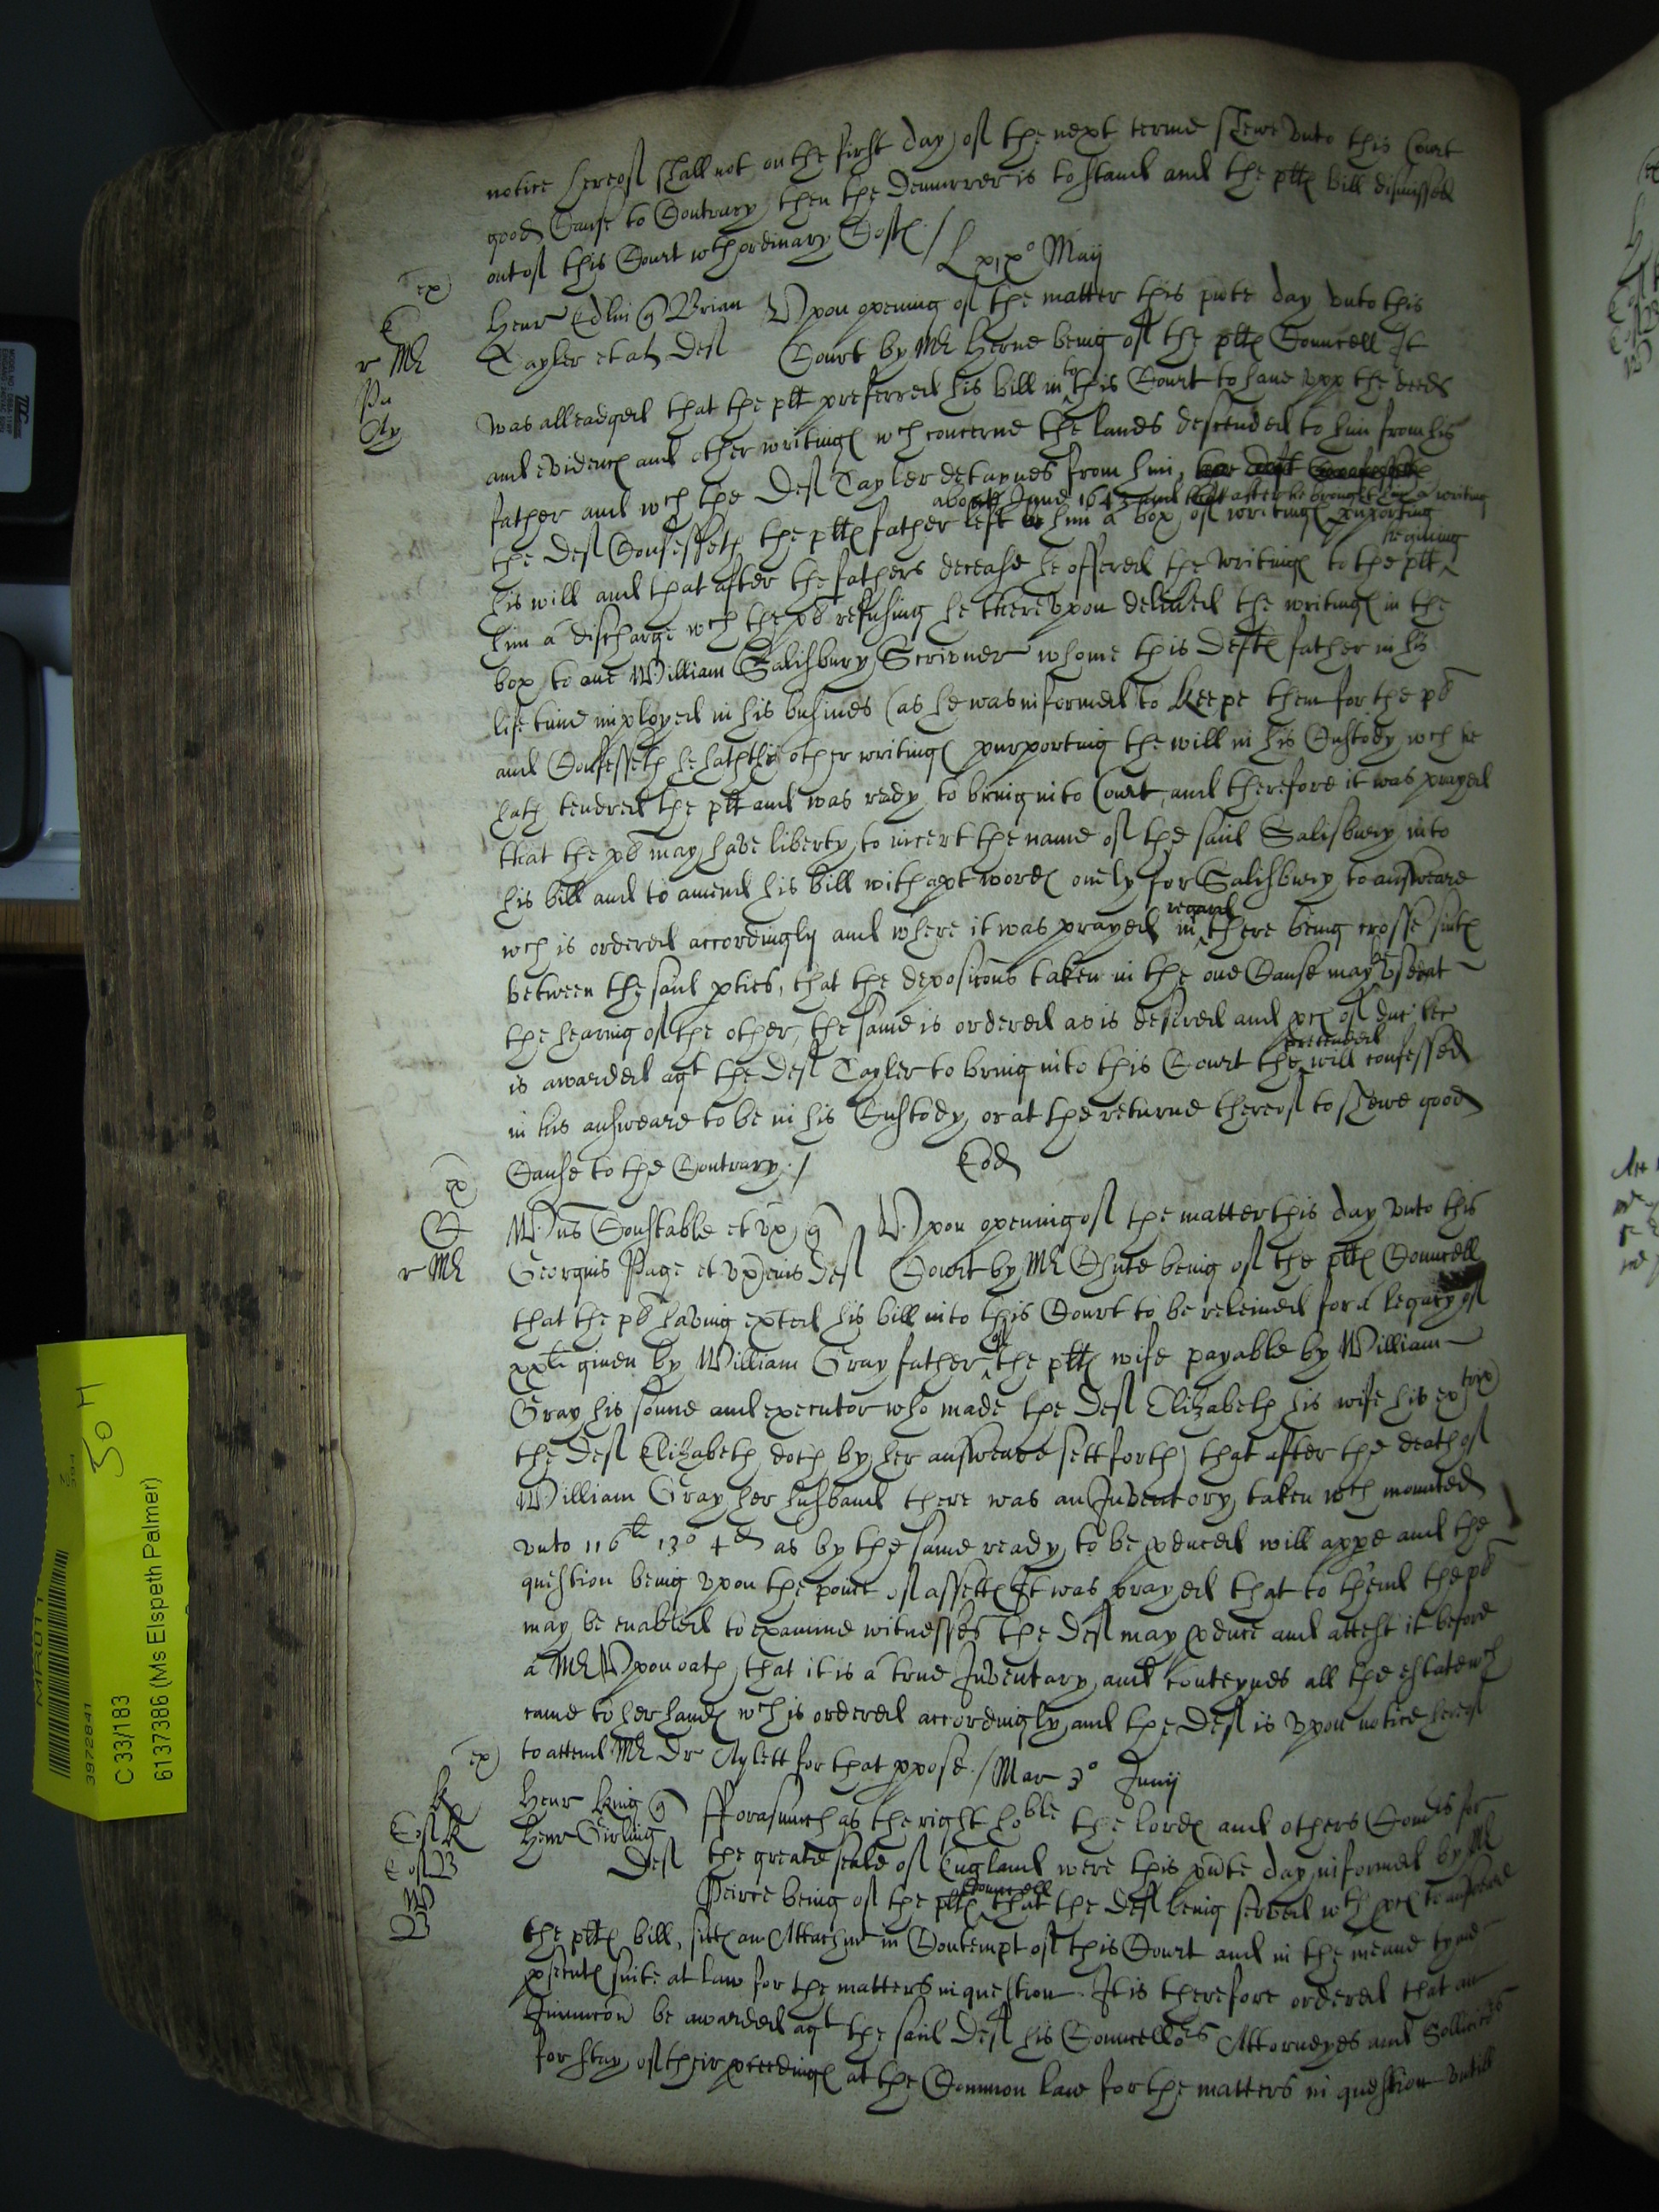 notice hereof shall not on the first day of the next terme shewe vnto this Court
good Cause to Contrary then the Demurrer is to stand and the pltfs bill dismissed
out of this Court wth ordinary Costs ./ L xixo Maij
ex
Henr Edlin q Brian Vpon opening of the matter this pnte day vnto this
r Mr Tayler et al Deft Court by Mr Herne being of the pltfs Councell It
was alleadged that the plt preferred his bill in to this Court to haue vpp the deeds
and evidencs and other writings wch concerne the lands descended to him from his
father and wch the Deft Tayler detaynes from him,
about June 1643 and that after he brought him a writing
the Deft Confesseth the pltfs father left him a box of writings purporting
his will and that after the fathers decease he offered the writings to the plt
him a discharge wch the pt refusing he therevpon deliūed the writings in the
box to one William Salisbury Scrivener whome this Defts father in his
life time imployed in his busines (as he was informed) to keepe them for the pt
and Confesseth he hath the other writings purporting the will in his Custody wch he
hath tendred the plt and was ready to bring into Court, and therefore it was prayed
that the pt may have liberty to incert the name of the said Salisbury into
his bill and to amend his bill with apt words onely for Salisbury to answeare
wch is ordered accordingly and where it was prayed in regard there being crosse suits
between the said pties, that the deposicōns taken in the one Cause may be vsed at
the hearing of the other, the same is ordered as is desired and
is awarded agt the Deft Tayler to bring into this Court the pretended will confessed
in his answeare to be in his Custody, or at the returne thereof to shewe good
Cause to the Contrary ./ Eod
ex
Wms Constable et vx q Vpon opening of the matter this day vnto this
r Mr Georgius Page et vx eius Deft Court by Mr Chute being of the pltfs Councell
that the pt having exhited his bill into this Court to be releiued for a legacy of
xxli given by William Gray father of the pltfs wife payable by William
Gray his sonne and executor who made the Deft Elizabeth his wife his extrix
the Deft Elizabeth doth by her answeare sett forth that after the death of
William Gray her husband there was an Inventory taken wch mounted
vnto 116li 13s 4d as by the same ready to be pduced will appe and the
question being vpon the point of assetts It was prayed that to thend the pt
may be enabled to examine witnesses the Deft may pduce and attest it before
a Mr Vpon oath, that it is a true Inventary and conteynes all the estate wch
came to her hands wch is ordered accordingly, and the Deft is vpon notice hereof
to attend Mr Dr Aylett for that ppose ./ Mar 3o Junij
ex
Henr King q Fforasmuch as the right hoble the lords and others Comrs for
Henr Girling Deft the greate seale of England were this pnte day informed by Mr
Peirce being of the pltfs Councell that the Deft being served wth to answeare
the pltfs bill, sitts an Attachmt in Contempt of this Court and in the meane tyme
psecuts suite at law for the matters in question. It is therefore ordered that an
Iniunccōn be awarded agt the said Deft his Councellors Attorneyes and Sollicitrs
for stay of their pceedings at the Common law for the matters in question vntill
C 33/183
6137386 (Ms Elspeth Palmer)
3972841
30 H